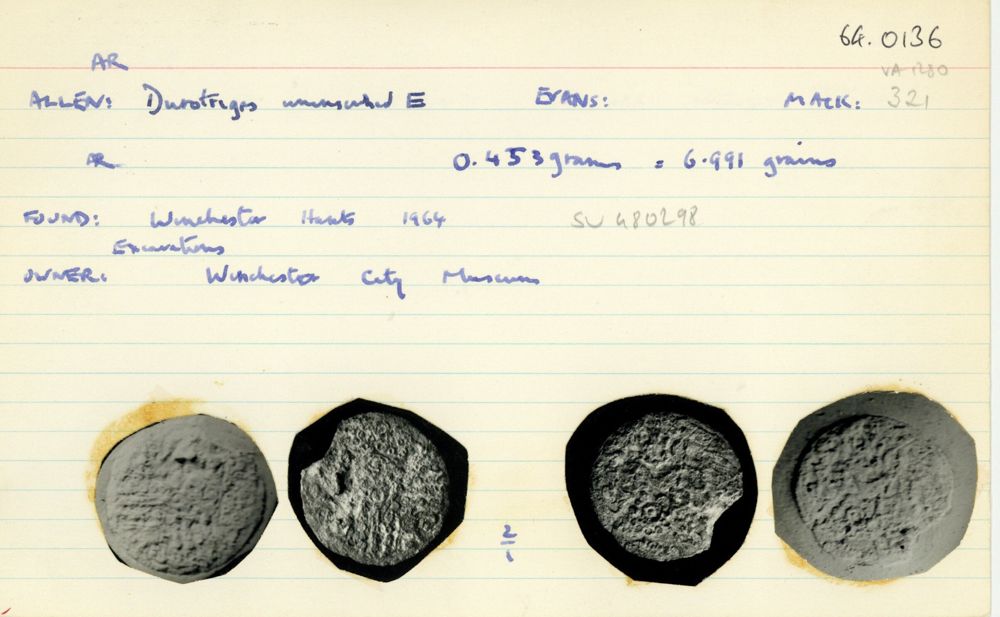 64.0136
AR
VA 1280
ALLEN: Durotriges uninscribed E EVANS: MACK: 321
AR 0.453 grams = 6.991 grains
FOUND: Winchester Hants 1964 SU 480298
Excavations
OWNER: Winchester City Museum
2
1